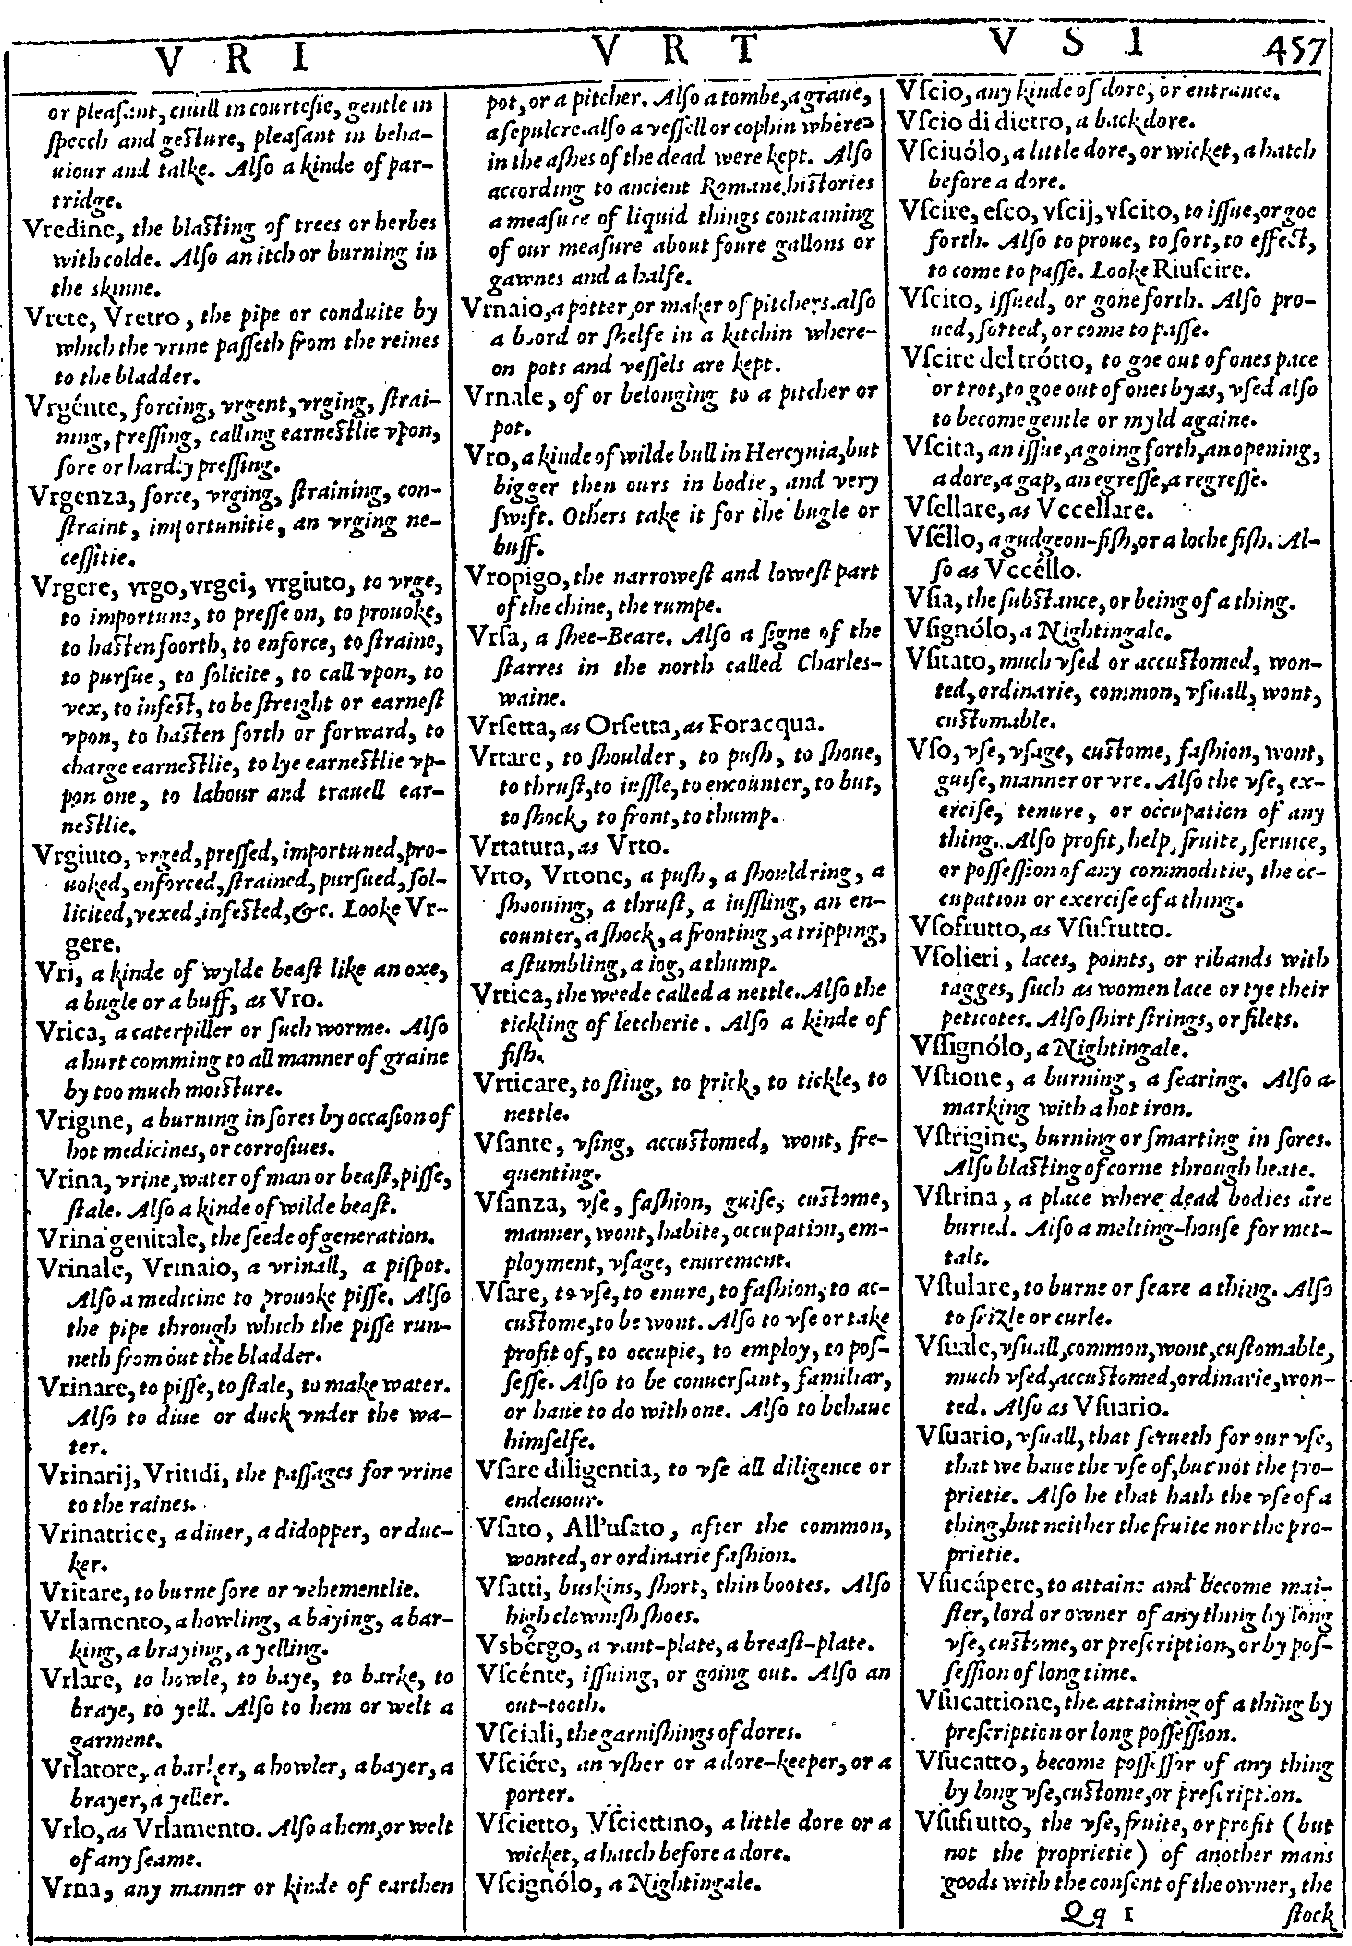 V R I
V R T
V S I
457
or pleasant, ciuill in courtesie, gentle in
speech and gesture, pleasant in beha-
uiour and talke. Also a kinde of par-
tridge.
Vredine, the blasting of trees or herbes
with colde. Also an itch or burning in
the skinne.
Vrete, Vretro, the pipe or conduite by
which the vrine passeth from the reines
to the bladder.
Vrgénte, forcing, vrgent, vrging, strai-
ning, pressing, calling earnestlie vpon,
sore or hardly pressing.
Vrgenza, force, vrging, straining, con-
straint, importunitie, an vrging ne-
cessitie.
Vrgere, vrgo, vrgei, vrgiuto, to vrge,
to importune, to presse on, to prouoke,
to hasten foorth, to enforce, to straine,
to pursue, to solicite, to call vpon, to
vex, to infest, to be streight or earnest
vpon, to hasten forth or forward, to
charge earnestlie, to lye earnestlie vp-
pon one, to labour and trauell ear-
nestlie.
Vrgiuto, vrged, pressed, importuned, pro-
uoked, enforced, strained, pursued, sol-
licited, vexed, infested, &c. Looke Vr-
gere.
Vri, a kinde of wylde beast like an oxe,
a bugle or a buff, as Vro.
Vrica, a caterpiller or such worme. Also
a hurt comming to all manner of graine
by too much moisture.
Vrigine, a burning in sores by occasion of
hot medicines, or corrosiues.
Vrina, vrine, water of man or beast, pisse,
stale. Also a kinde of wilde beast.
Vrina genitale, the seede of generation.
Vrinale, Vrinaio, a vrinall, a pispot.
Also a medicine to prouoke pisse. Also
the pipe through which the pisse run-
neth from out the bladder.
Vrinare, to pisse, to stale, to make water.
Also to diue or duck vnder the wa-
ter.
Vrinarij, Vritidi, the passages for vrine
to the raines.
Vrinatrice, a diuer, a didopper, or duc-
ker.
Vritare, to burne sore or vehementlie.
Vrlamento, a howling, a baying, a bar-
king, a braying, a yelling.
Vrlare, to howle, to baye, to barke, to
braye, to yell. Also to hem or welt a
garment.
Vrlatore, a barker, a howler, a bayer, a
brayer, a yeller.
Vrlo, as Vrlamento. Also a hem, or welt
of any seame.
Vrna, any manner or kinde of earthen
pot, or a pitcher. Also a tombe, a graue,
a sepulcre. also a vessell or cophin where
in the ashes of the dead were kept. Also
according to ancient Romane histories
a measure of liquid things containing
of our measure about foure gallons or
gawnes and a halfe.
Vrnaio, a potter, or maker of pitchers. also
a bord or shelfe in a kitchin where-
on pots and vessels are kept.
Vrnale, of or belonging to a pitcher or
pot.
Vro, a kinde of wilde bull in Hercynia, but
bigger then ours in bodie, and very
swift. Others take it for the bugle or
buff.
Vropigo, the narrowest and lowest part
of the chine, the rumpe.
Vrsa, a shee-Beare. Also a signe of the
starres in the north called Charles-
waine.
Vrsetta, as Orsetta, as Foracqua.
Vrtare, to shoulder, to push, to shoue,
to thrust, to iussle, to encounter, to but,
to shock, to front, to thump.
Vrtatura, as Vrto.
Vrto, Vrtone, a push, a shouldring, a
shoouing, a thrust, a iussling, an en-
counter, a shock, a fronting, a tripping,
a stumbling, a iog, a thump.
Vrtica, the weede called a nettle. Also the
tickling of letcherie. Also a kinde of
fish.
Vrticare, to sting, to prick, to tickle, to
nettle.
Vsante, vsing, accustomed, wont, fre-
quenting.
Vsanza, vse, fashion, guise, custome,
manner, wont, habite, occupation, em-
ployment, vsage, enurement.
Vsare, to vse, to enure, to fashion, to ac-
custome, to be wont. Also to vse or take
profit of, to occupie, to employ, to pos-
sesse. Also to be conuersant, familiar,
or haue to do with one. Also to behaue
himselfe.
Vsare diligentia, to vse all diligence or
endeuour.
Vsato, All'usato, after the common,
wonted, or ordinarie fashion.
Vsatti, buskins, short, thin bootes. Also
high clownish shoes.
Vsbérgo, a vant-plate, a breast-plate.
Vscénte, issuing, or going out. Also an
out-tooth.
Vsciali, the garnishings of dores.
Vsciére, an vsher or a dore-keeper, or a
porter.
Vscietto, Vsciettino, a little dore or a
wicket, a hatch before a dore.
Vscignólo, a Nightingale.
Vscio, any kinde of dore, or entrance.
Vscio di dietro, a back dore.
Vsciuólo, a little dore, or wicket, a hatch
before a dore.
Vscire, esco, vscij, vscito, to issue, or goe
forth. Also to proue, to sort, to effect,
to come to passe. Looke Riuscire.
Vscito, issued, or gone forth. Also pro-
ued, sorted, or come to passe.
Vscire del trótto, to goe out of ones pace
or trot, to goe out of ones byas, vsed also
to become gentle or myld againe.
Vscita, an issue, a going forth, an opening,
a dore, a gap, an egresse, a regresse.
Vsellare, as Vccellare.
Vséllo, a gudgeon-fish, or a loche fish. Al-
so as Vccéllo.
Vsia, the substance, or being of a thing.
Vsignólo, a Nightingale.
Vsitato, much vsed or accustomed, won-
ted, ordinarie, common, vsuall, wont,
customable.
Vso, vse, vsage, custome, fashion, wont,
guise, manner or vre. Also the vse, ex-
ercise, tenure, or occupation of any
thing. Also profit, help, fruite, seruice,
or possession of any commoditie, the oc-
cupation or exercise of a thing.
Vsofrutto, as Vsufrutto.
Vsolieri, laces, points, or ribands with
tagges, such as women lace or tye their
peticotes. Also shirt strings, or filets.
Vssignólo, a Nightingale.
Vstione, a burning, a searing. Also a
marking with a hot iron.
Vstrigine, burning or smarting in sores.
Also blasting of corne through heate.
Vstrina, a place where dead bodies are
buried. Also a melting-house for met-
tals.
Vstulare, to burne or seare a thing. Also
to frizle or curle.
Vsuale, vsuall, common, wont, customable,
much vsed, accustomed, ordinarie, won-
ted. Also as Vsuario.
Vsuario, vsuall, that serueth for our vse,
that we haue the vse of, but not the pro-
prietie. Also he that hath the vse of a
thing, but neither the fruite nor the pro-
prietie.
Vsucápere, to attaine and become mai-
ster, lord or owner of any thing by long
vse, custome, or prescription, or by pos-
session of long time.
Vsucattione, the attaining of a thing by
prescription or long possession.
Vsucatto, become possessor of any thing
by long vse, custome, or prescription.
Vsufrutto, the vse, fruite, or profit (but
not the proprietie) of another mans
goods with the consent of the owner, the
Qq 1
stock